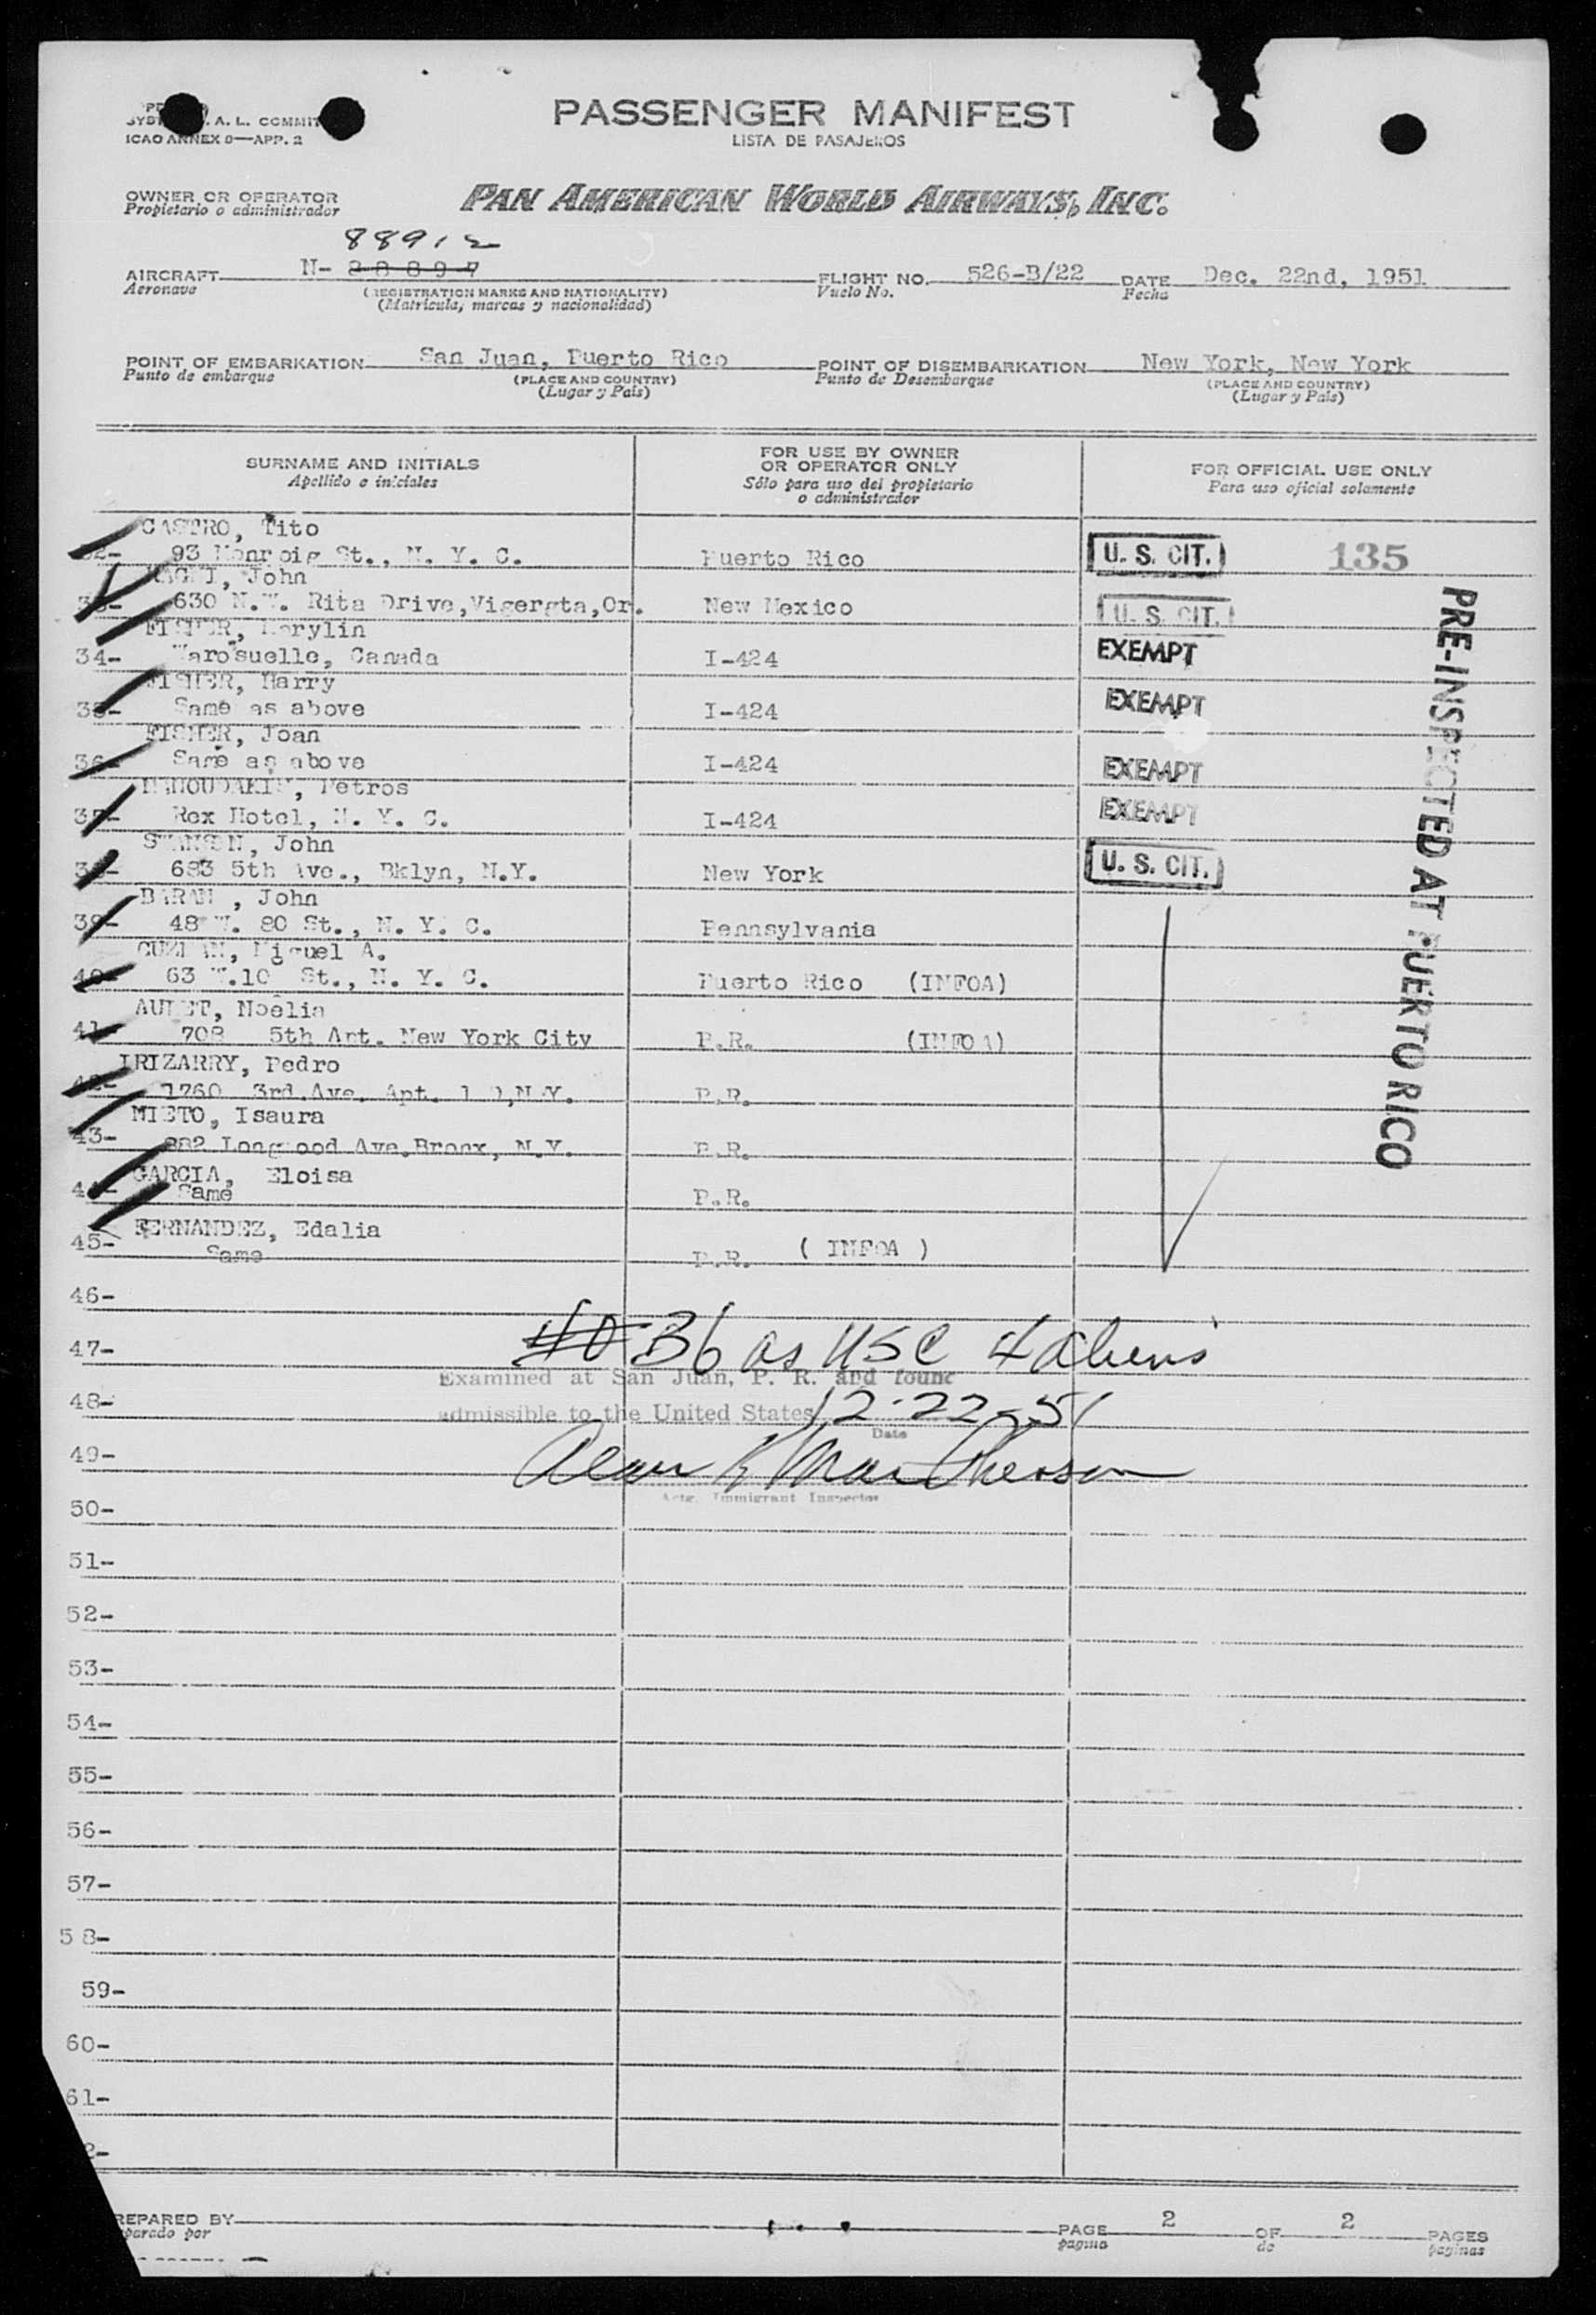 A. L. COMMIT
ICAO ANNEX 9—APP. 2
PASSENGER MANIFEST
LISTA DE PASAJEROS
OWNER OR OPERATOR
Propietario o administrador
PAN AMERICAN WORLD AIRWAYS, INC.
88912
AIRCRAFT N- 28897 FLIGHT NO. 526-B/22 DATE Dec. 22nd, 1951
Aeronave (REGISTRATION MARKS AND NATIONALITY) Vuelo No. Fecha
(Matricula, marcas y nacionalidad)
POINT OF EMBARKATION San Juan, Puerto Rico POINT OF DISEMBARKATION New York, New York
Punto de embarque (PLACE AND COUNTRY) Punto de Desembarque (PLACE AND COUNTRY)
(Lugar y Pais) (Lugar y Pais)
SURNAME AND INITIALS FOR USE BY OWNER OR OPERATOR ONLY FOR OFFICIAL USE ONLY
Apellido e iniciales Sólo para uso del propietario o administrador Para uso oficial solamente
CASTRO, Tito
32- 93 St., N. Y. C. Puerto Rico U. S. CIT. 135
John
33- 630 N.W. Rita Drive, New Mexico U. S. CIT.
FISHER, Marylin
34- Canada I-424 EXEMPT
FISHER, Harry
35- Same as above I-424 EXEMPT
FISHER, Joan
36- Same as above I-424 EXEMPT
Petros
37- Rex Hotel, N. Y. C. I-424 EXEMPT
SWANSON, John
38- 683 5th Ave., Bklyn, N.Y. New York U. S. CIT.
BARAN, John
39- 48 W. 80 St., N. Y. C. Pennsylvania
GUZMAN, Miguel A.
40- 63 W.10 St., N. Y. C. Puerto Rico (INFOA)
AULET, Noelia
41- 708 5th Apt. New York City P.R. (INFOA)
IRIZARRY, Pedro
42- 1760 3rd.Ave. Apt. N.Y. P.R.
NIETO, Isaura
43- 882 Longwood Ave.Bronx, N.Y. P.R.
GARCIA, Eloisa
44- Same P.R.
FERNANDEZ, Edalia
45- Same P.R. ( INFOA )
PRE-INSPECTED AT PUERTO RICO
46-
47- 40 36 as USC 4 aliens
Examined at San Juan, P. R. and found
48- admissible to the United States 12-22-51
Date
49-
Actg. Immigrant Inspector
50-
51-
52-
53-
54-
55-
56-
57-
58-
59-
60-
61-
2-
REPARED BY PAGE 2 OF 2 PAGES
parado por pagina de paginas